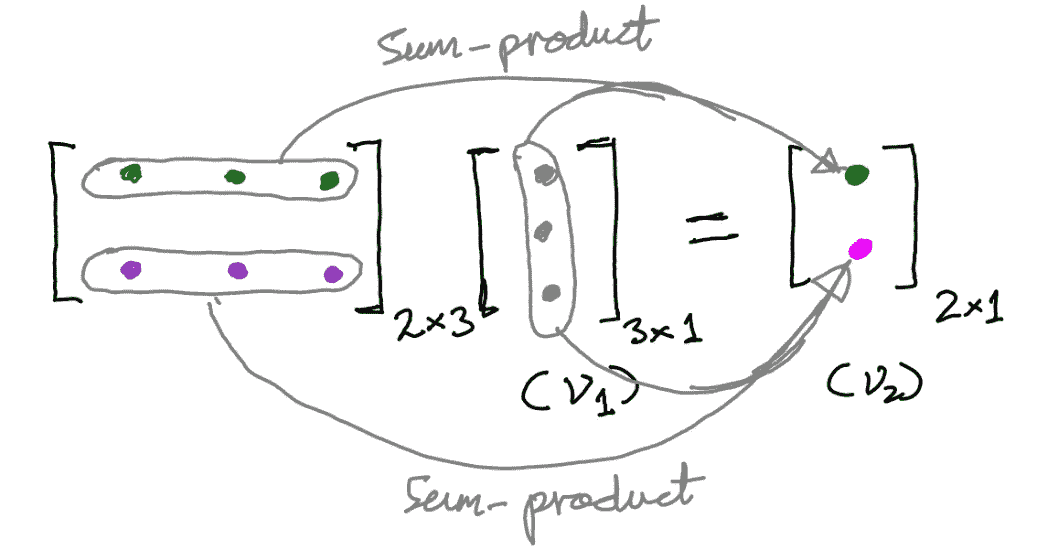 Sum-product
2×3
3×1
=
2×1
(v₁)
(v₂)
Sum-product